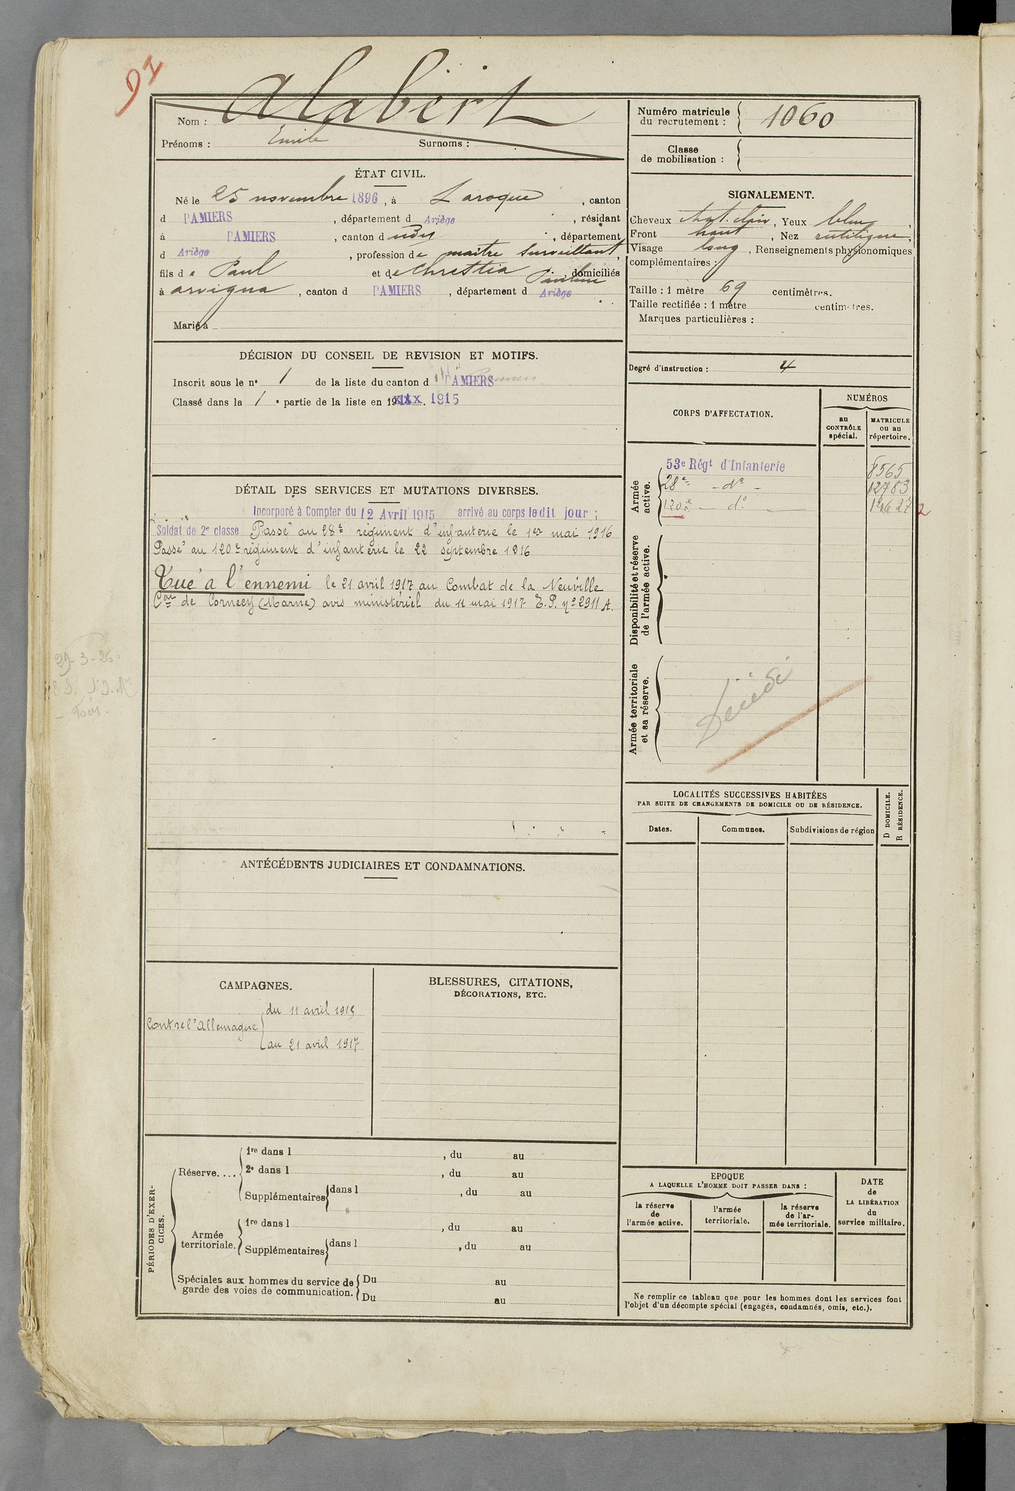 91
Nom : Alabert
Prénoms : Emile Surnoms :
Numéro matricule du recrutement : 1060
Classe de mobilisation :
ÉTAT CIVIL.
Né le 25 novembre 1896, à Laroque, canton
d PAMIERS, département d Ariège, résidant
à PAMIERS, canton d udu, département
d Ariège, profession de maître surveillant,
fils de Paul et de Chrestia Pauline domiciliés
à arvigna, canton d PAMIERS, département d Ariège
Marié à
SIGNALEMENT.
Cheveux chat. clair, Yeux bleu
Front haut, Nez rectiligne,
Visage long, Renseignements physionomiques
complémentaires :
Taille : 1 mètre 69 centimètres.
Taille rectifiée : 1 mètre centimètres.
Marques particulières :
Degré d'instruction : 4
DÉCISION DU CONSEIL DE REVISION ET MOTIFS.
Inscrit sous le nº 1 de la liste du canton d PAMIERS
Classé dans la 1e partie de la liste en 1915
CORPS D'AFFECTATION.
NUMÉROS
au CONTRÔLE spécial.
MATRICULE OU AU répertoire.
Armée active.
53e Régt d'Infanterie 8565
28e - dº - 12783
120e - dº - 2
Disponibilité et réserve de l'armée active.
Armée territoriale et sa réserve.
Décédé
DÉTAIL DES SERVICES ET MUTATIONS DIVERSES.
Incorporé à Compter du 12 Avril 1915 arrivé au corps ledit jour ;
Soldat de 2e classe Passé au 28e régiment d'infanterie le 1er mai 1916
Passé au 120e régiment d'infanterie le 22 septembre 1916
Tué à l'ennemi le 21 avril 1917 au Combat de la Neuville
Con de Cormecy (Marne) avis ministériel du 11 mai 1917 E.P. nº 2911 A.
LOCALITÉS SUCCESSIVES HABITÉES
PAR SUITE DE CHANGEMENTS DE DOMICILE OU DE RÉSIDENCE.
Dates.
Communes.
Subdivisions de région
D DOMICILE.
R RÉSIDENCE.
ANTÉCÉDENTS JUDICIAIRES ET CONDAMNATIONS.
CAMPAGNES.
Contre l'Allemagne
du 11 avril 1915
au 21 avril 1917
BLESSURES, CITATIONS,
DÉCORATIONS, ETC.
PÉRIODES D'EXERCICES.
Réserve....
1re dans l , du au
2e dans l , du au
Supplémentaires dans l , du au
Armée territoriale.
1re dans l , du au
Supplémentaires dans l , du au
Spéciales aux hommes du service de garde des voies de communication.
Du au
Du au
EPOQUE
A LAQUELLE L'HOMME DOIT PASSER DANS :
la réserve de l'armée active.
l'armée territoriale.
la réserve de l'armée territoriale.
DATE de LA LIBÉRATION du service militaire.
Ne remplir ce tableau que pour les hommes dont les services font
l'objet d'un décompte spécial (engagés, condamnés, omis, etc.).